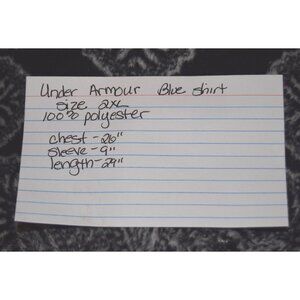 Under Armour Blue shirt
size 2XL
100% polyester
chest - 26"
sleeve - 9"
length - 29"